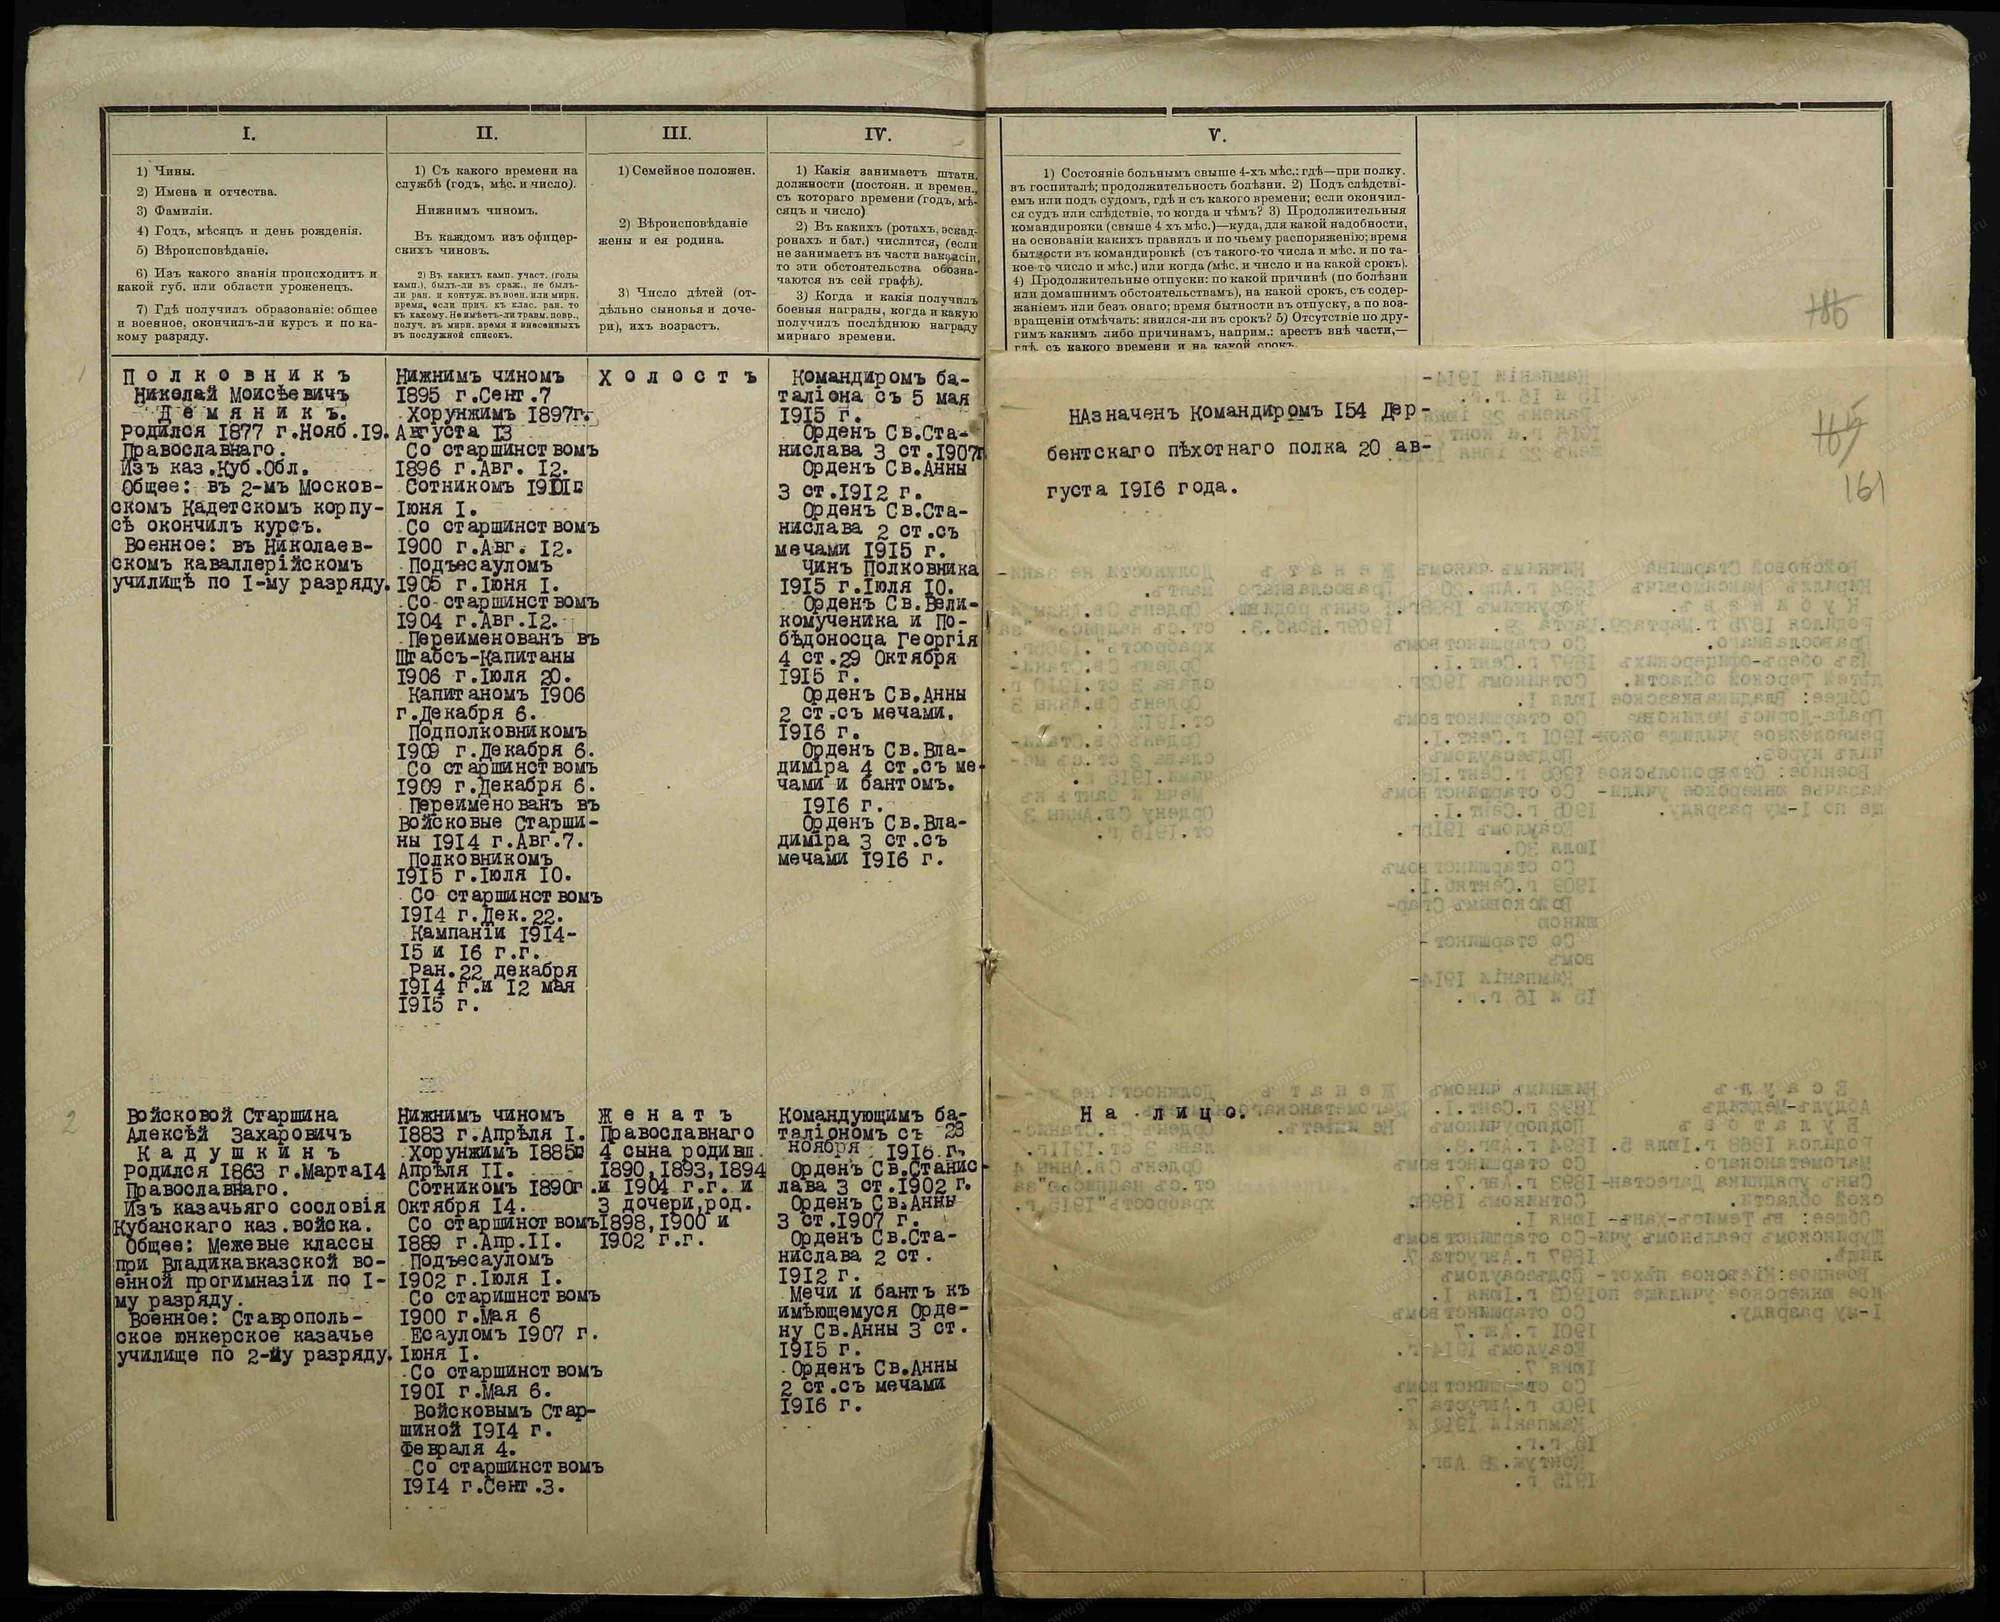 I.
1) Чины.
2) Имена и отчества.
3) Фамиліи.
4) Годъ, мѣсяцъ и день рожденія.
5) Вѣроисповѣданіе.
6) Изъ какого званія происходитъ и
какой губ. или области уроженецъ.
7) Гдѣ получилъ образованіе: общее
и военное, окончилъ-ли курсъ и по ка-
кому разряду.
II.
1) Съ какого времени на
службѣ (годъ, мѣс. и число).
Нижнимъ чиномъ.
Въ каждомъ изъ офицер-
скихъ чиновъ.
2) Въ какихъ камп. участ. (годы
камп.), былъ-ли въ сраж., не былъ-
ли ран. и контуж. въ воен. или мирн.
время, если прич. къ клас. ран. то
къ какому. Не имѣетъ-ли травм. повр.,
получ. въ мирн. время и внесенныхъ
въ послужной списокъ.
III.
1) Семейное положен.
2) Вѣроисповѣданіе
жены и ея родина.
3) Число дѣтей (от-
дѣльно сыновья и доче-
ри), ихъ возрастъ.
IV.
1) Какія занимаетъ штатн.
должности (постоян. и времен.,
съ котораго времени (годъ, мѣ-
сяцъ и число)
2) Въ какихъ (ротахъ, эскад-
ронахъ и бат.) числится, (если
не занимаетъ въ части вакансіи,
то эти обстоятельства обозна-
чаются въ сей графѣ).
3) Когда и какія получилъ
боевыя награды, когда и какую
получилъ послѣднюю награду
мирнаго времени.
V.
1) Состояніе больнымъ свыше 4-хъ мѣс.: гдѣ—при полку.
въ госпиталѣ; продолжительность болѣзни. 2) Подъ слѣдстві-
емъ или подъ судомъ, гдѣ и съ какого времени; если окончил-
ся судъ или слѣдствіе, то когда и чѣмъ? 3) Продолжительныя
командировки (свыше 4 хъ мѣс.)—куда, для какой надобности,
на основаніи какихъ правилъ и по чьему распоряженію; время
бытности въ командировкѣ (съ такого-то числа и мѣс. и по та-
кое-то число и мѣс.) или когда (мѣс. и число и на какой срокъ).
4) Продолжительные отпуски: по какой причинѣ (по болѣзни
или домашнимъ обстоятельствамъ), на какой срокъ, съ содер-
жаніемъ или безъ онаго; время бытности въ отпуску, а по воз-
вращеніи отмѣчать: явился-ли въ срокъ? 5) Отсутствіе по дру-
гимъ какимъ либо причинамъ, наприм.: арестъ внѣ части,—
гдѣ, съ какого времени и на какой срокъ.
1
Полковникъ
Николай Моисѣевичъ
Демяникъ.
Родился 1877 г.Нояб.19.
Православнаго.
Изъ каз.Куб.Обл.
Общее: въ 2-мъ Москов-
скомъ Кадетскомъ корпу-
сѣ окончилъ курсъ.
Военное: въ Николаев-
скомъ кавалерійскомъ
училищѣ по I-му разряду.
Нижнимъ чиномъ
1895 г.Сент.7
Хорунжимъ 1897г.
Августа 13
Со старшинствомъ
1896 г.Авг. 12.
Сотникомъ 1901г
Іюня I.
Со старшинствомъ
1900 г.Авг. 12.
Подъесауломъ
1905 г.Іюня I.
Со старшинствомъ
1904 г.Авг.12.
Переименованъ въ
Штабсъ-Капитаны
1906 г.Іюля 20.
Капитаномъ 1906
г.Декабря 6.
Подполковникомъ
1909 г.Декабря 6.
Со старшинствомъ
1909 г.Декабря 6.
Переименованъ въ
Войсковые Старши-
ны 1914 г.Авг.7.
Полковникомъ
1915 г.Іюля 10.
Со старшинствомъ
1914 г.Дек.22.
Кампаніи 1914-
15 и 16 г.г.
Ран.22 декабря
1914 г.и 12 мая
1915 г.
Холостъ
Командиромъ ба-
таліона съ 5 мая
1915 г.
Орденъ Св.Ста-
нислава 3 ст.1907г
Орденъ Св.Анны
3 ст.1912 г.
Орденъ Св.Ста-
нислава 2 ст.съ
мечами 1915 г.
Чинъ Полковника
1915 г.Іюля 10.
Орденъ Св.Вели-
комученика и По-
бѣдоносца Георгія
4 ст.29 Октября
1915 г.
Орденъ Св.Анны
2 ст.съ мечами.
1916 г.
Орденъ Св.Вла-
диміра 4 ст.съ ме-
чами и бантомъ.
1916 г.
Орденъ Св.Вла-
диміра 3 ст.съ
мечами 1916 г.
Назначенъ Командиромъ 154 Дер-
бентскаго пѣхотнаго полка 20 ав-
густа 1916 года.
161
2
Войсковой Старшина
Алексѣй Захаровичъ
Кадушкинъ
Родился 1863 г.Марта14
Православнаго.
Изъ казачьяго сословія
Кубанскаго каз.войска.
Общее: Межевые классы
при Владикавказской во-
енной прогимназіи по I-
му разряду.
Военное: Ставрополь-
ское юнкерское казачье
училище по 2-му разряду.
Нижнимъ чиномъ
1883 г.Апрѣля I.
Хорунжимъ 1885г
Апрѣля II.
Сотникомъ 1890г.
Октября 14.
Со старшинствомъ
1889 г.Апр.II.
Подъесауломъ
1902 г.Іюля I.
Со старишнствомъ
1900 г.Мая 6
Есауломъ 1907 г.
Іюня I.
Со старшинствомъ
1901 г.Мая 6.
Войсковымъ Стар-
шиной 1914 г.
Февраля 4.
Со старшинствомъ
1914 г.Сент.3.
Женатъ
Православнаго
4 сына родивш.
1890,1893,1894
и 1904 г.г. и
3 дочери,род.
1898,1900 и
1902 г.г.
Командующимъ ба-
таліономъ съ 23
ноября 1916 г.
Орденъ Св.Станис-
лава 3 ст.1902 г.
Орденъ Св.Анны
3 ст.1907 г.
Орденъ Св.Ста-
нислава 2 ст.
1912 г.
Мечи и бантъ къ
имѣющемуся Орде-
ну Св.Анны 3 ст.
1915 г.
Орденъ Св.Анны
2 ст.съ мечами
1916 г.
На лицо.